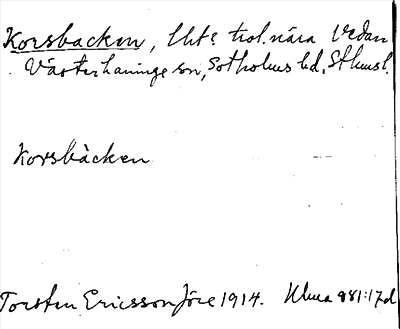 Korsbacken, lht s trol. nära Vedan
Västerhaninge sn, Sotholms hd, Sthmsl.
Korsbäcken
Torsten Ericsson Jöre 1914. Ulma 881:17d